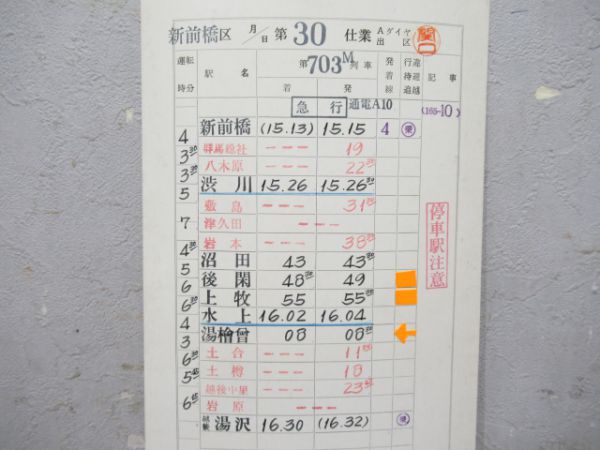 新前橋区 月/日 第 30 仕業 Aダイヤ 出区 関口
運転時分 駅名 第703M列車 着 発 発着線 行違 待避 追越 記事
急行 通電A10 (165-10)
4 新前橋 (15.13) 15.15 4
3 30 群馬総社 --- 19
3 30 八木原 --- 22 30
5 渋川 15.26 15.26 30
敷島 --- 31 30
7 津久田 ---
岩本 --- 38 30
4 30 沼田 43 43 30
5 後閑 48 30 49
6 上牧 55 55 30
6 30 水上 16.02 16.04
4 湯檜曽 08 08 30
3 土合 --- 11
6 30 土樽 --- 18
5 45 越後中里 --- 23
岩原 ---
6 45 越後湯沢 16.30 (16.32)
停車駅注意